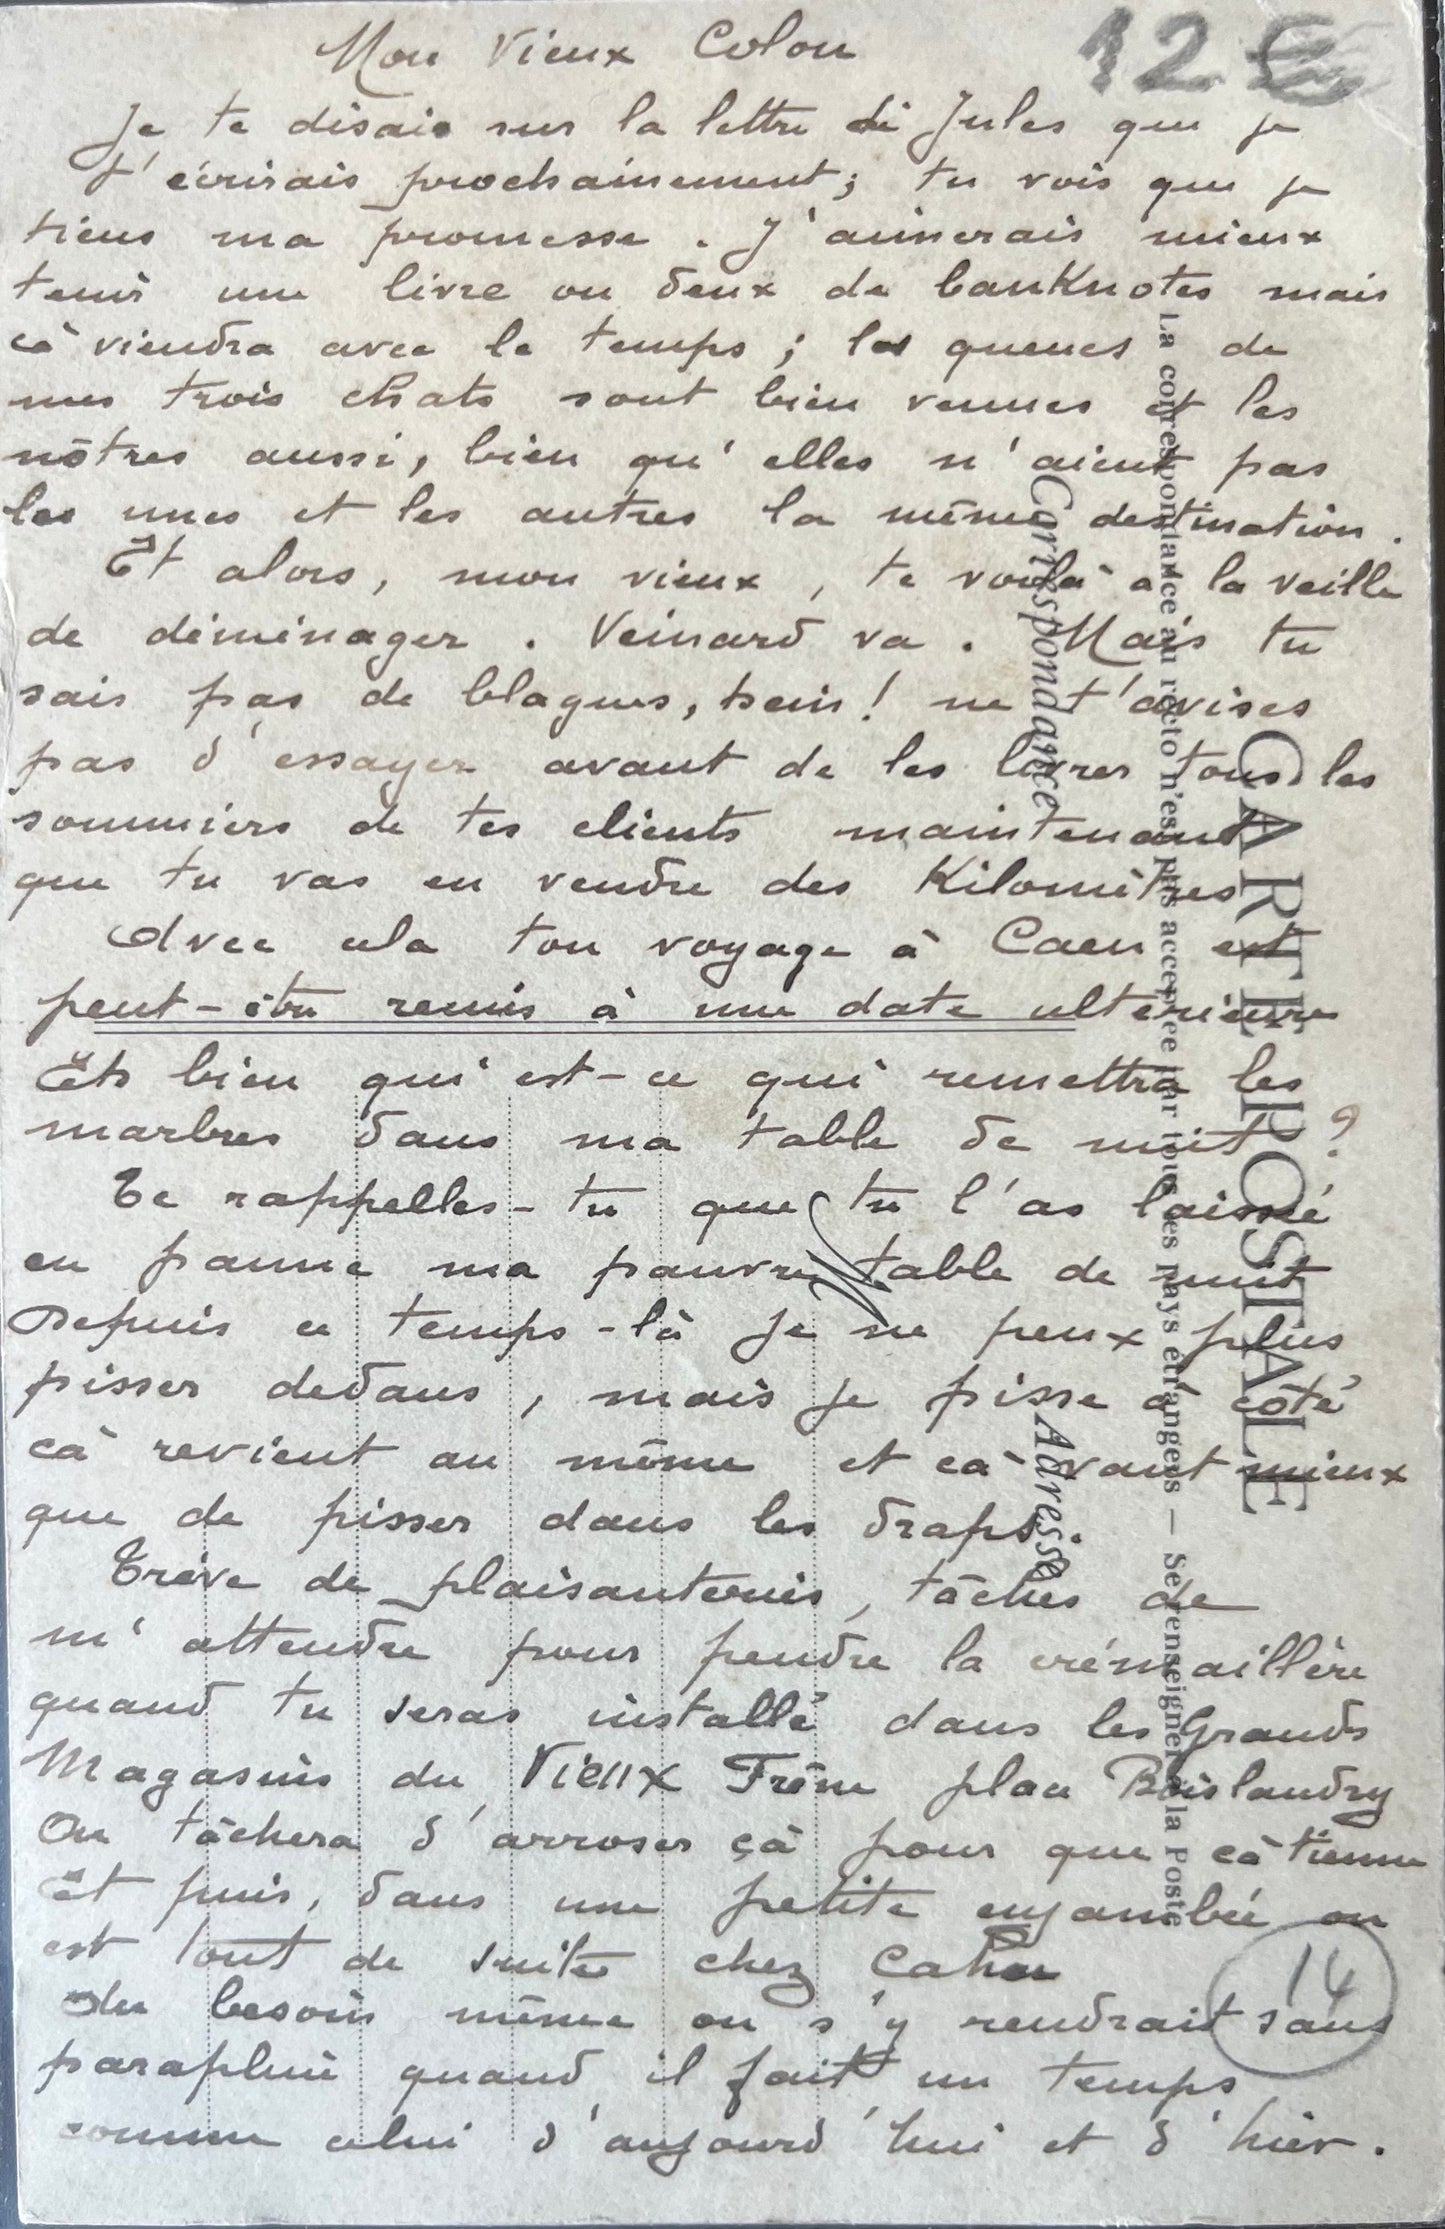 Mon Vieux Colon
12 €
Je te disais sur la lettre de Jules que je
t'écrirais prochainement ; tu vois que je
tiens ma promesse . J'aimerais mieux
tenir une livre ou deux de banknotes mais
cà viendra avec le temps ; les queues de
mes trois chats sont bien venues et les
nôtres aussi, bien qu'elles n'aient pas
les unes et les autres la même destination .
Et alors, mon vieux, te voilà à la veille
de déménager . Veinard va . Mais tu
sais pas de blagues, hein ! ne t'avises
pas d'essayer avant de les livrer tous les
sommiers de tes clients maintenant
que tu vas en vendre des Kilomètres
Avec cela ton voyage à Caen est
peut-être remis à une date ultérieure
Eh bien qui est-ce qui remettra les
marbres dans ma table de nuit ?
Te rappelles-tu que tu l'as laissé
en panne ma pauvre table de nuit
Depuis ce temps-là je ne peux plus
pisser dedans, mais je pisse à côté
cà revient au même et cà vaut mieux
que de pisser dans les draps.
Trève de plaisanteries, tâches de
m'attendre pour pendre la crémaillère
quand tu seras installé dans les Grands
Magasins du Vieux Frêne place Boislandry
On tâchera d'arroser çà pour que cà tienne
Et puis, dans une petite enjambée on
est tout de suite chez Cahu
Au besoin même on s'y rendrait sans
parapluie quand il fait un temps
comme celui d'aujourd'hui et d'hier .
14
CARTE POSTALE
La correspondance au recto n'est pas acceptée par tous les pays étrangers — Se renseigner à la Poste
Correspondance
Adresse